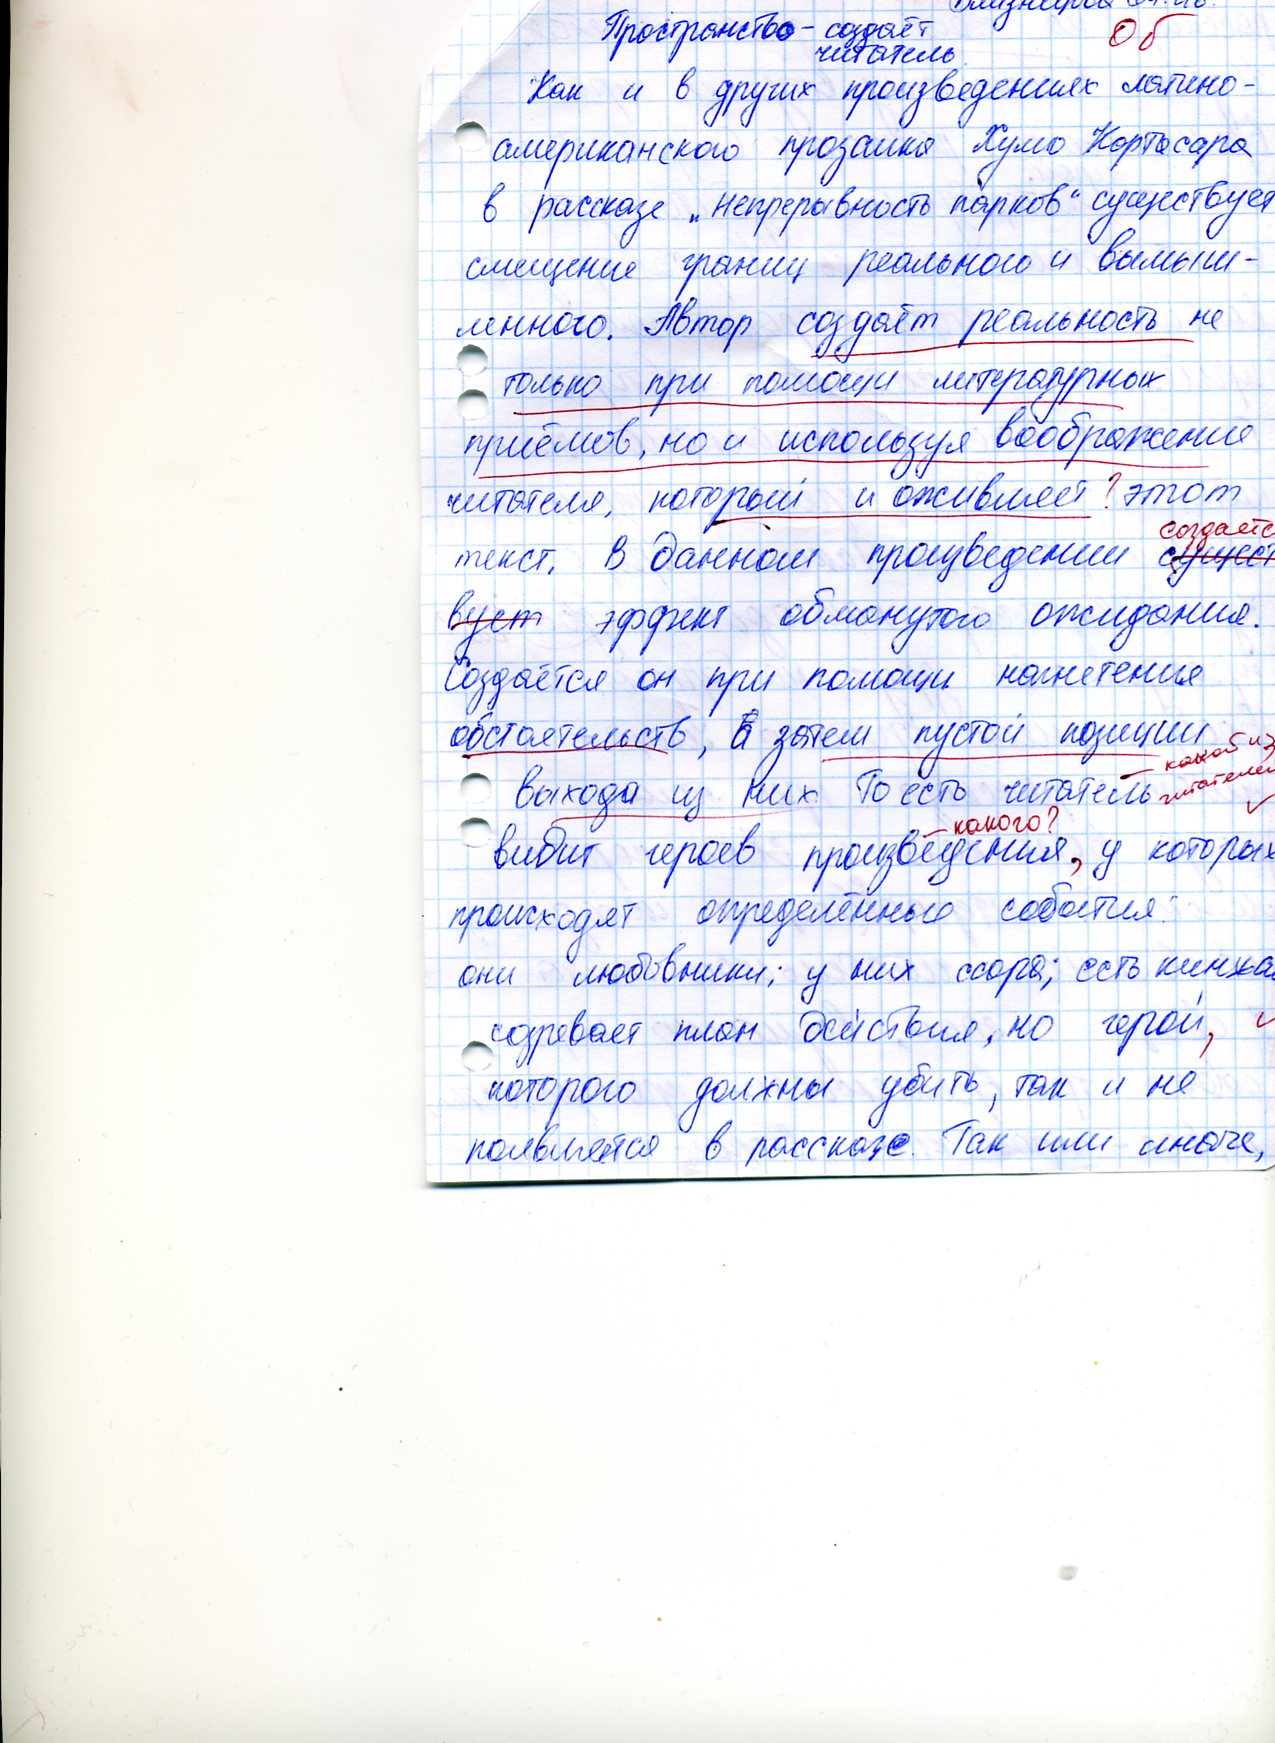 Пространство – создаёт
читатель
Об
Как и в других произведениях латино-
американского прозаика Хулио Кортасара
в рассказе „Непрерывность парков“ существует
смещение границ реального и вымыш-
ленного. Автор создаёт реальность не
только при помощи литературных
приёмов, но и используя воображение
читателя, который и оживляет ? этот
создаётс
текст. В данном произведении сущест
вует эффект обманутого ожидания.
Создаётся он при помощи нагнетения
обстоятельств, а затем пустой позиции
– какой из
читателей
выхода из них. То есть читатель
– какого?
видит героев произведения, у которых
происходят определённые события:
они любовники; у них ссора; есть кинжа
созревает план действия, но герой,
которого должны убить, так и не
появляется в рассказе. Так или иначе,